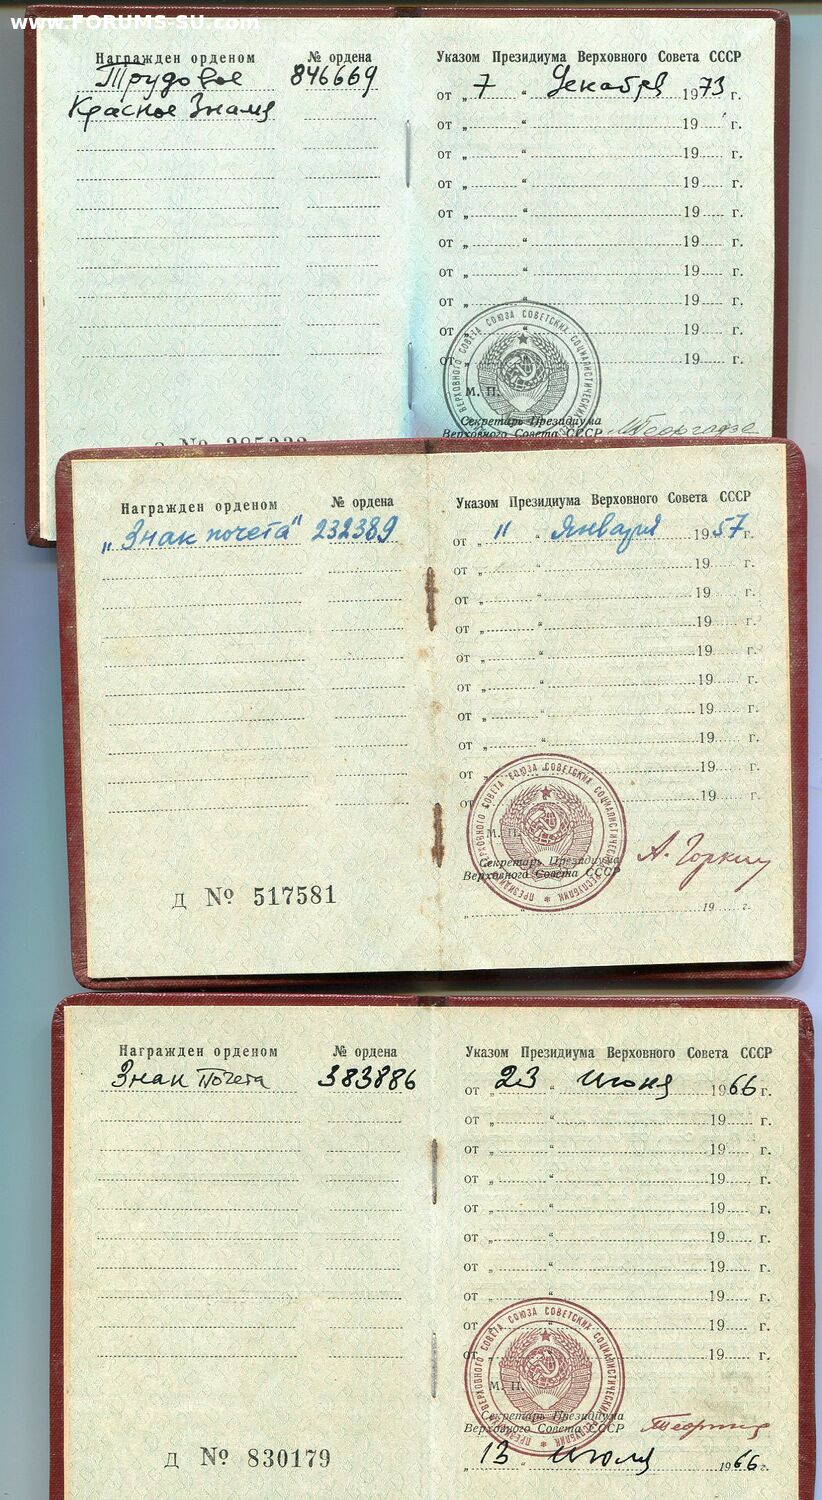 www.FORUMS-SU.com
Награжден орденом № ордена
Трудовое 846669
Красное Знамя
Указом Президиума Верховного Совета СССР
от „ 7 “ Декабря 1973 г.
от „ “ 19 г.
от „ “ 19 г.
от „ “ 19 г.
от „ “ 19 г.
от „ “ 19 г.
от „ “ 19 г.
от „ “ 19 г.
от „ “ 19 г.
от „ “ 19 г.
М. П.
Секретарь Президиума
Верховного Совета СССР
Награжден орденом № ордена
„Знак почета" 232389
Указом Президиума Верховного Совета СССР
от „ 11 “ Января 1957 г.
от „ “ 19 г.
от „ “ 19 г.
от „ “ 19 г.
от „ “ 19 г.
от „ “ 19 г.
от „ “ 19 г.
от „ “ 19 г.
от „ “ 19 г.
от „ “ 19 г.
М. П.
Секретарь Президиума
Верховного Совета СССР
А. Горкин
Д № 517581
„ “ 19 г.
Награжден орденом № ордена
Знак Почета 383886
Указом Президиума Верховного Совета СССР
от „ 23 “ июня 1966 г.
от „ “ 19 г.
от „ “ 19 г.
от „ “ 19 г.
от „ “ 19 г.
от „ “ 19 г.
от „ “ 19 г.
от „ “ 19 г.
от „ “ 19 г.
от „ “ 19 г.
М. П.
Секретарь Президиума
Верховного Совета СССР
Д № 830179
„ 13 “ июля 1966 г.